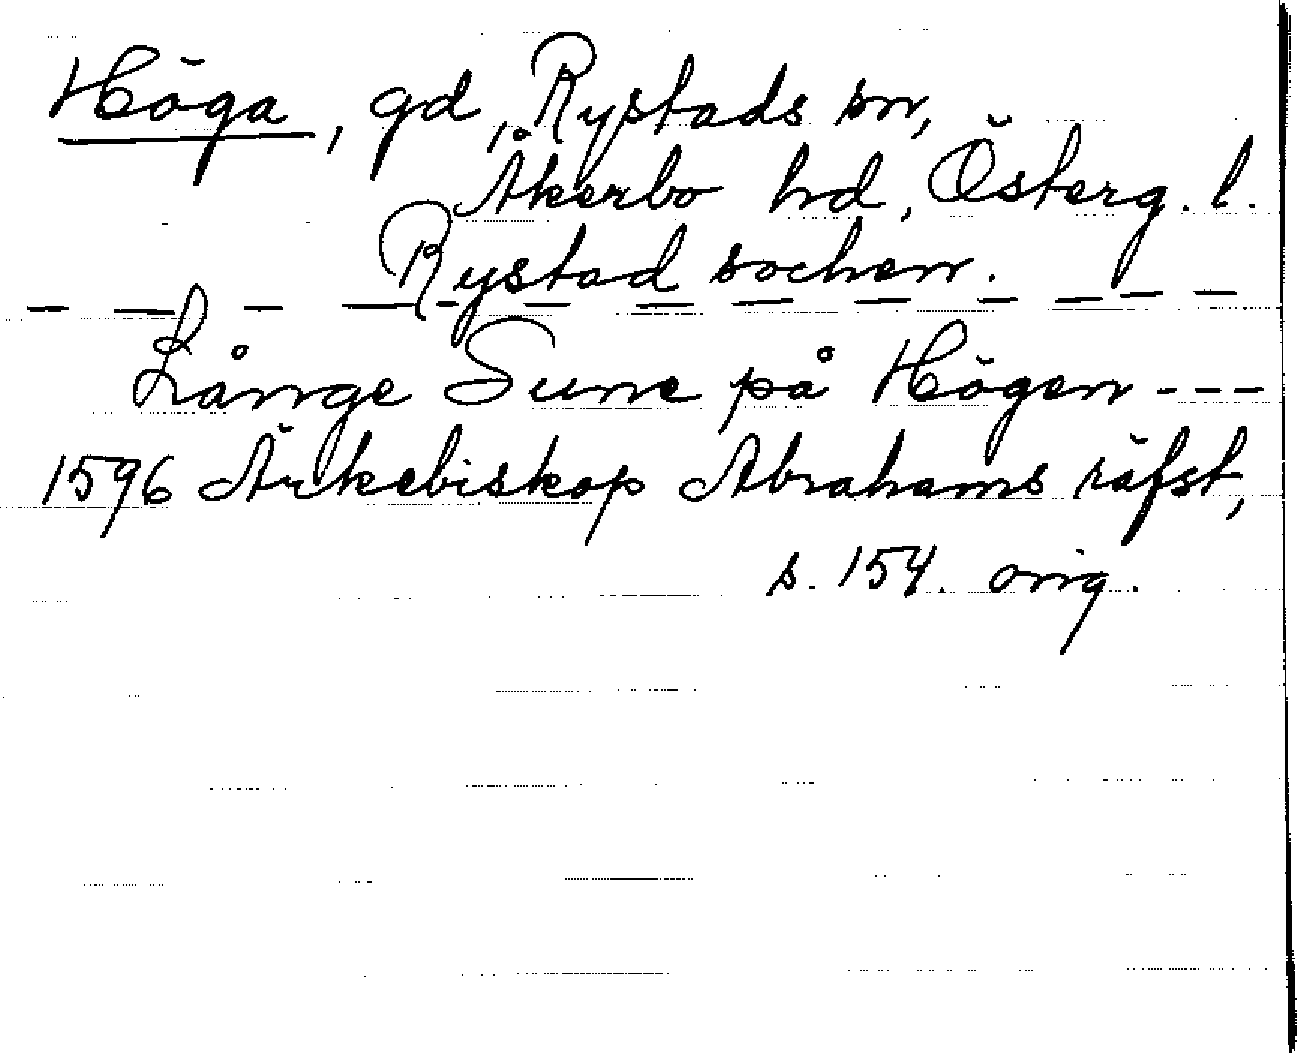 Höga, gd, Rystads sn,
Åkerbo hd, Österg. l.
Rystad sochen.
Långe Sune på Högen ---
1596 Ärkebiskop Abrahams räfst,
s. 154. orig.